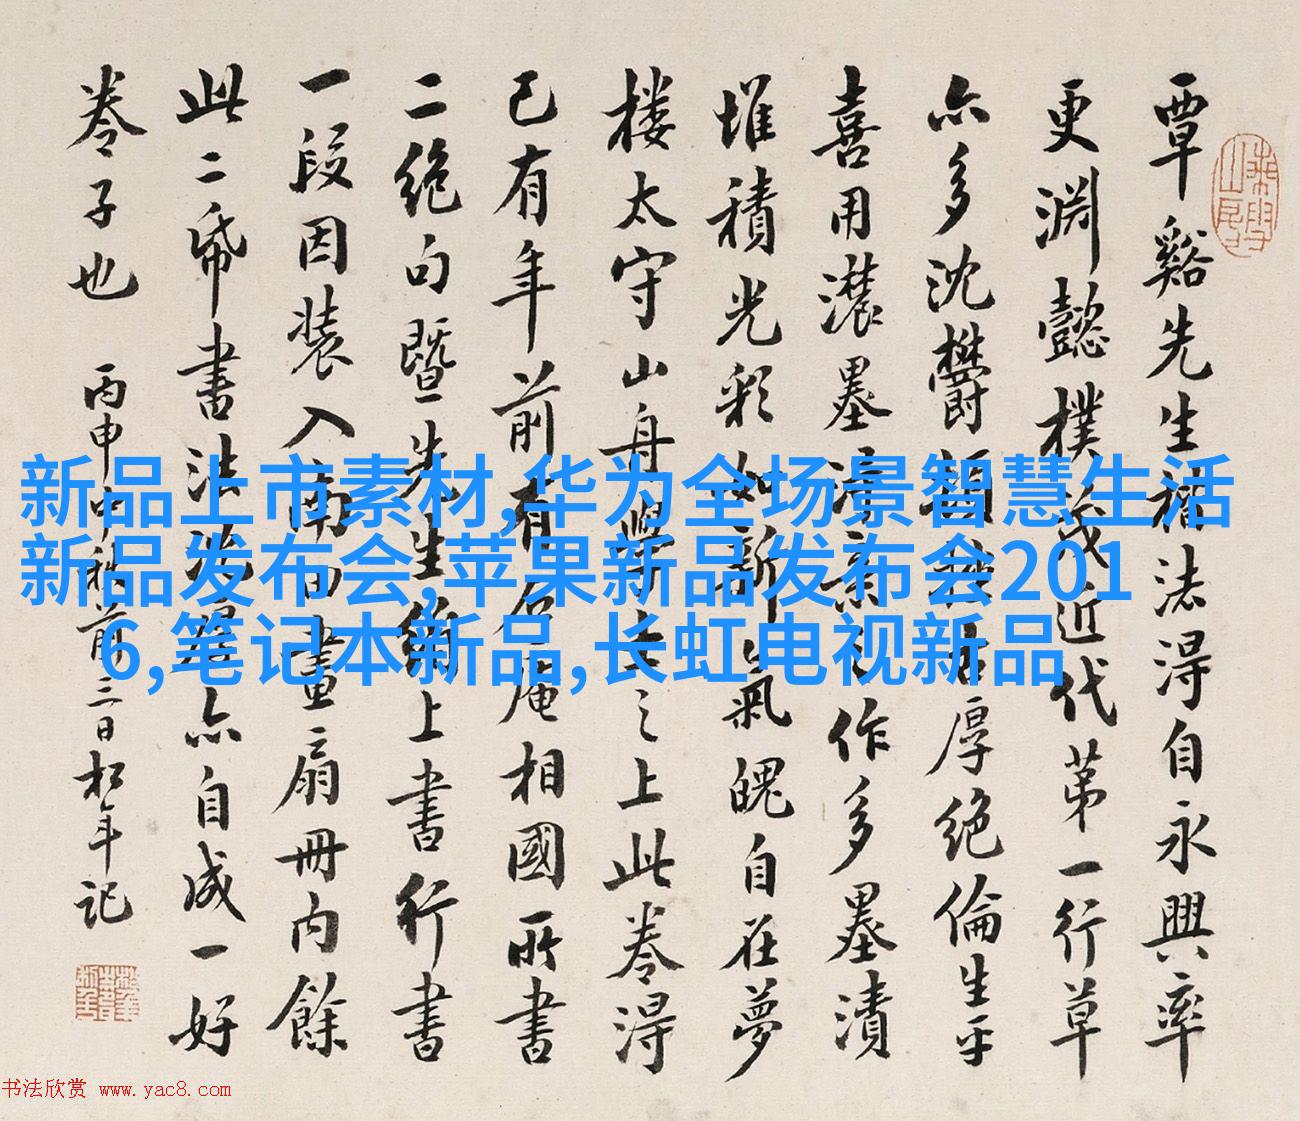 覃谿先生楷法得自永興率
更淵懿樸茂近代第一行草
亦多沈欝頓古厚絕倫生平
喜用濃墨作多墨漬
堆積光彩如新氣魄自在夢
楼太守山舟學士之上此卷得
已有年前有庵相國所書
二絕句暨先生上書行書
一段因装入南田畫扇冊内餘
此二帋書法亦自成一好
卷子也 丙申中秋前三日松年記
新品上市素材,华为全场景智慧生活
新品发布会,苹果新品发布会201
6,笔记本新品,长虹电视新品
书法欣赏 www.yac8.com